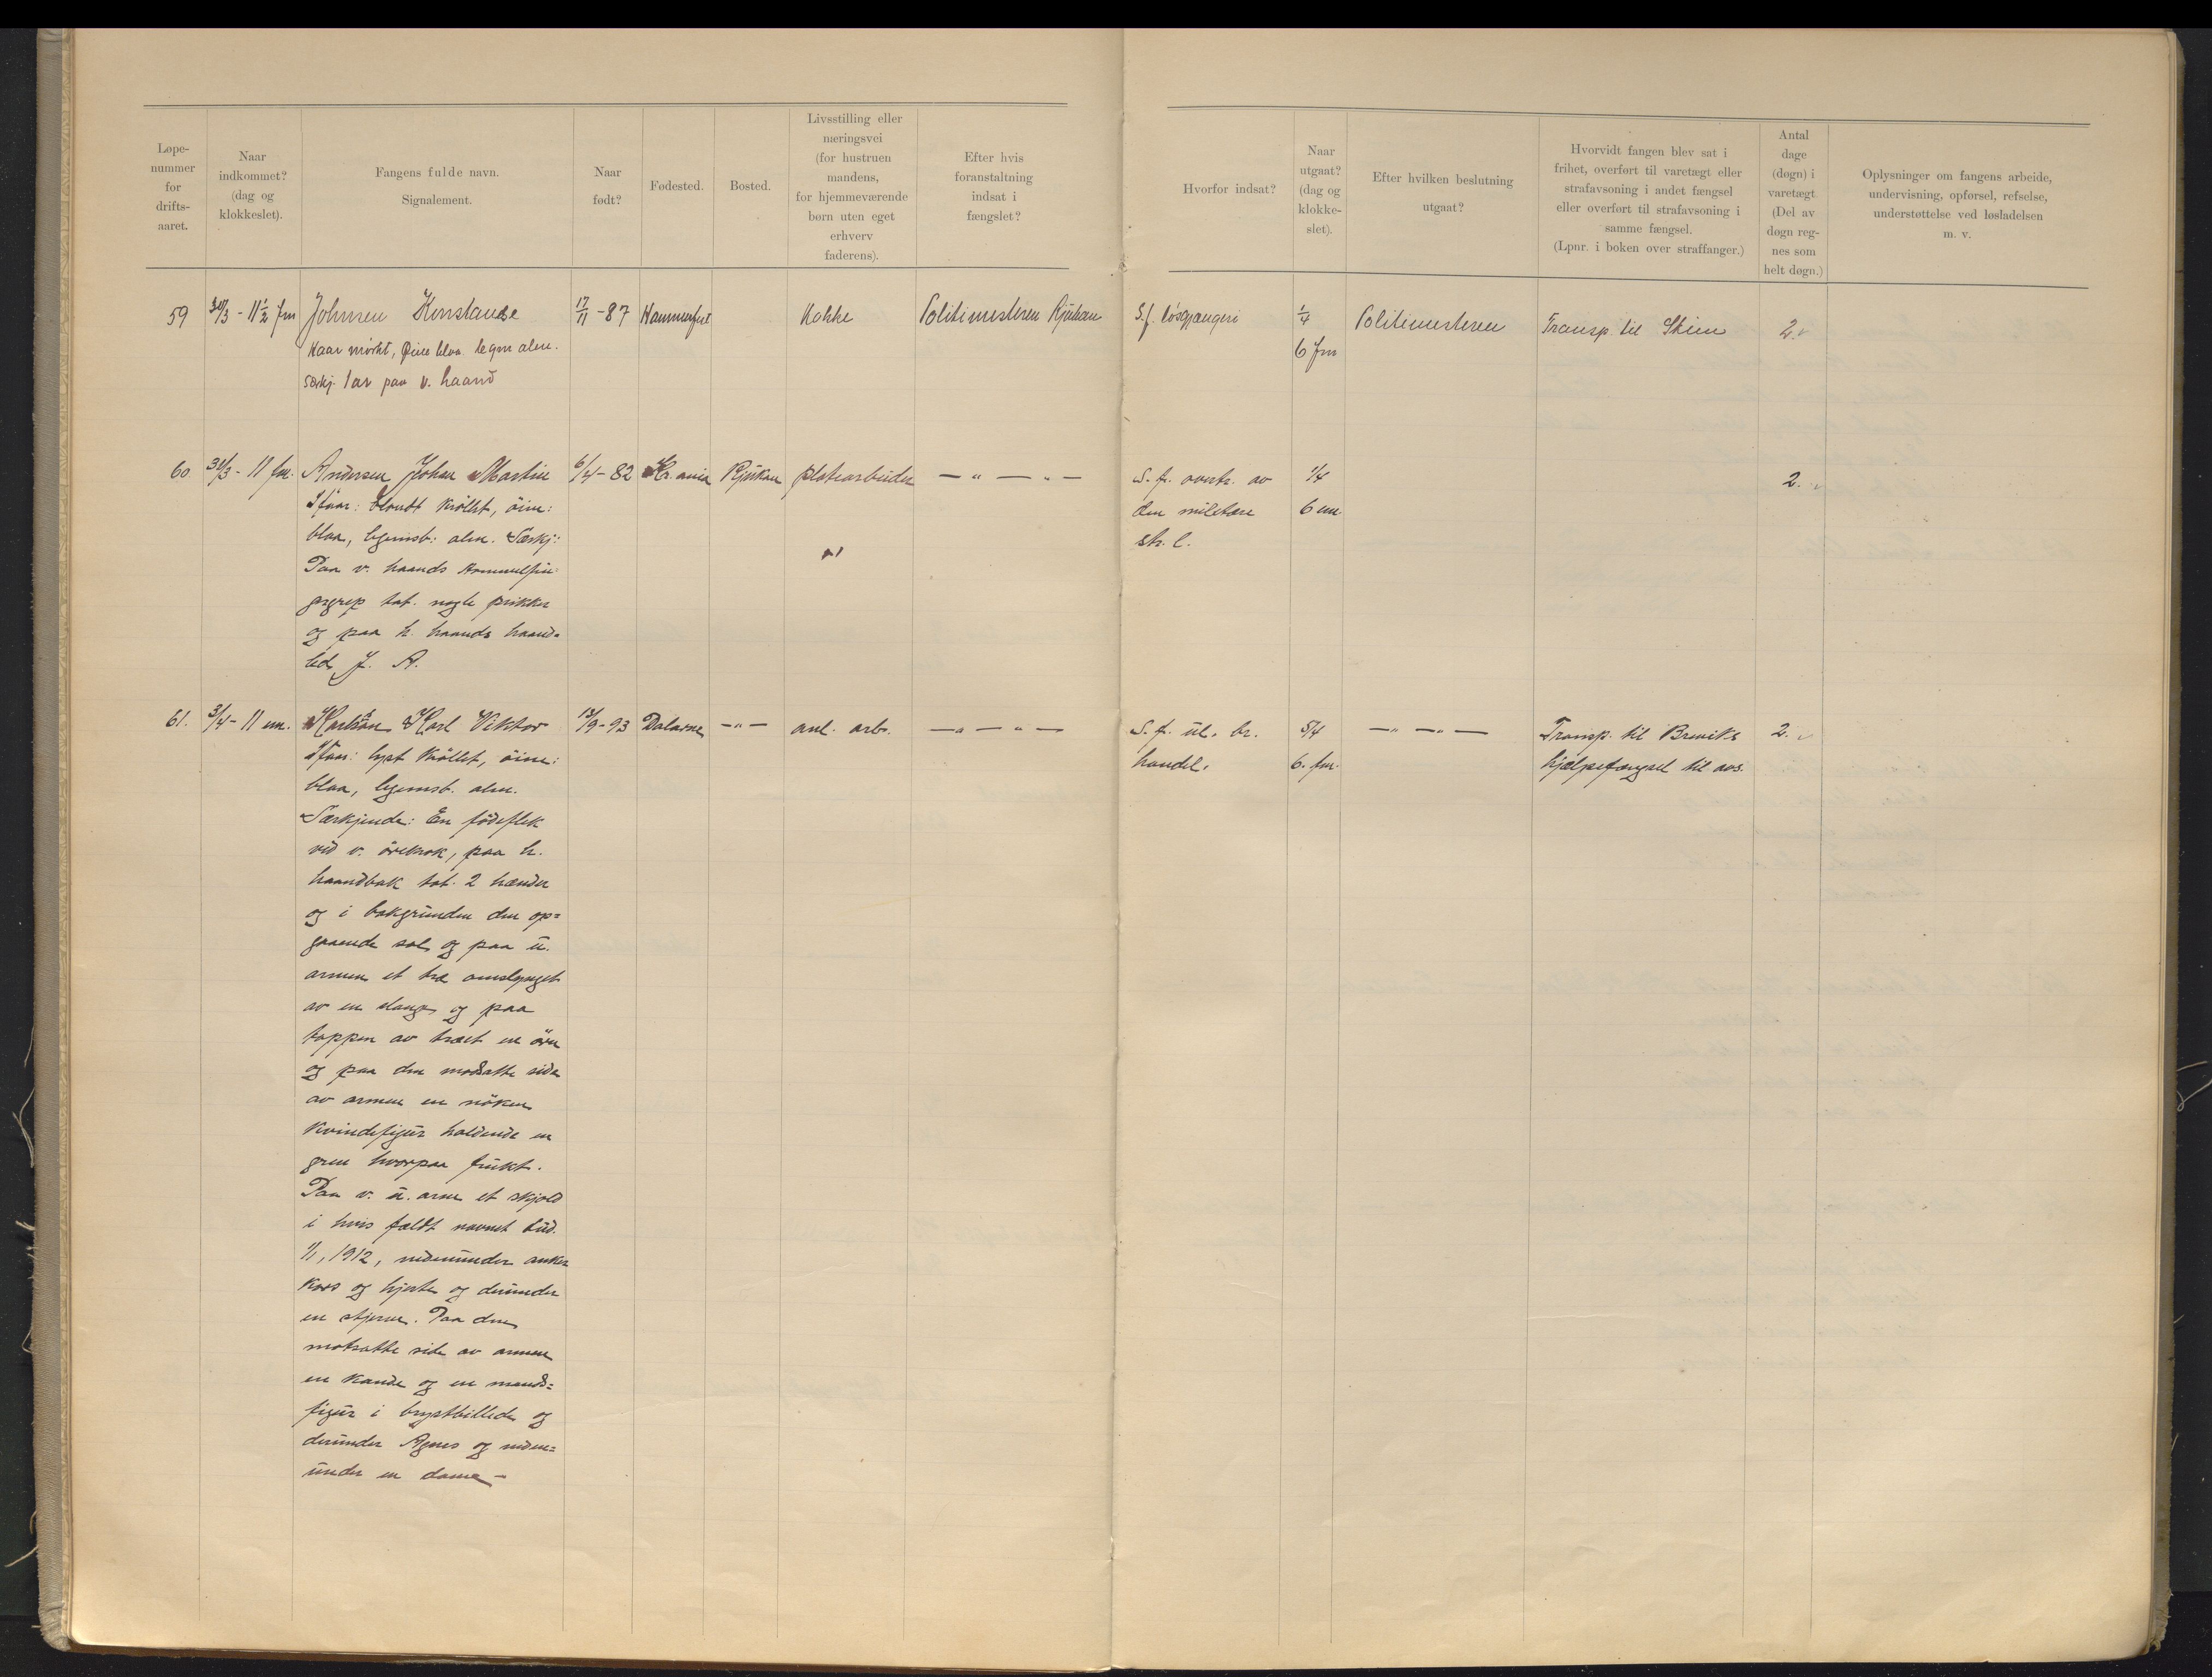 Løpe-
nummer
for
drifts-
aaret.
Naar
indkommet?
(dag og
klokkeslet).
Fangens fulde navn.
Signalement.
Naar
født?
Fødested.
Bosted.
Livsstilling eller
næringsvei
(for hustruen
mandens,
for hjemmeværende
børn uten eget
erhverv
faderens).
Efter hvis
foranstaltning
indsat i
fængslet?
Hvorfor indsat?
Naar
utgaat?
(dag og
klokke-
slet).
Efter hvilken beslutning
utgaat?
Hvorvidt fangen blev sat i
frihet, overført til varetægt eller
strafavsoning i andet fængsel
eller overført til strafavsoning i
samme fængsel.
(Lpnr. i boken over straffanger.)
Antal
dage
(døgn) i
varetægt.
(Del av
døgn reg-
nes som
helt døgn.)
Oplysninger om fangens arbeide,
undervisning, opførsel, refselse,
understøttelse ved løsladelsen
m. v.
59 - 11½ fm Johnsen Konstanse 17/11 - 87 Hammerfest Kokke Politimesteren Rjukan S.f. løsgjængeri 1/4 Politimesteren Transp. til Skien 2.
Haar mørkt, Øine blaa. legm alm. 6 fm
særkj. 1 ar paa v. haand
60 31/3 - 11 fm. Andersen Johan Martin 6/4 - 82 Kr.ania Rjukan platearbeider — " — " — S. f. overtr. av 1/4 2.
Haar: blondt krøllet, öine: den militære 6 em.
blaa, legemsb: alm. Særkj: str. l.
Paa v. haands tommelfin-
gergrep tat. nogle prikker
og paa h. haands haand-
led J. A.
61. 3/4 - 11 em. Karlson Karl Viktor 13/9 - 93 Dalarne — " — anl. arb. — " — " — S. f. ul. br. 5/4 — " — " — Transp. til Breviks 2.
Haar: lyst krøllet, öine: handel. 6. fm. hjælpefængsel til avs.
blaa, legemsb. alm.
Særkjende: En födeflek
vid v. örekrok, paa h.
haandbak tat. 2 hænder
og i bakgrunden den op=
gaaende sol og paa u.
armen et træ omslynget
av en slange og paa
toppen av træet en örn
og paa den modsatte side
av armen en nöken
kvindefigur holdende en
gren hvorpaa frukt.
Paa v. u. arm et skjold
i hvis fældt navnet Lud.
1/1, 1912, nedenunder anker
kors og hjerte og derunder
en stjerne. Paa den
motsatte side av armen
en kande og en mands=
figur i brystbillede og
derunder Agnes og neden=
under en dame —